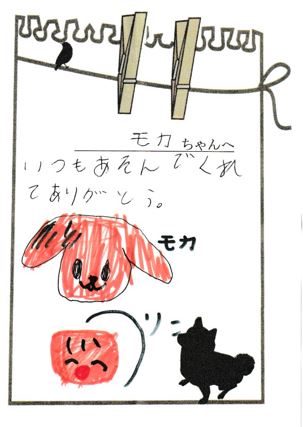 モカちゃんへ
いつもあそんでくれ
てありがとう。
モカ
リン